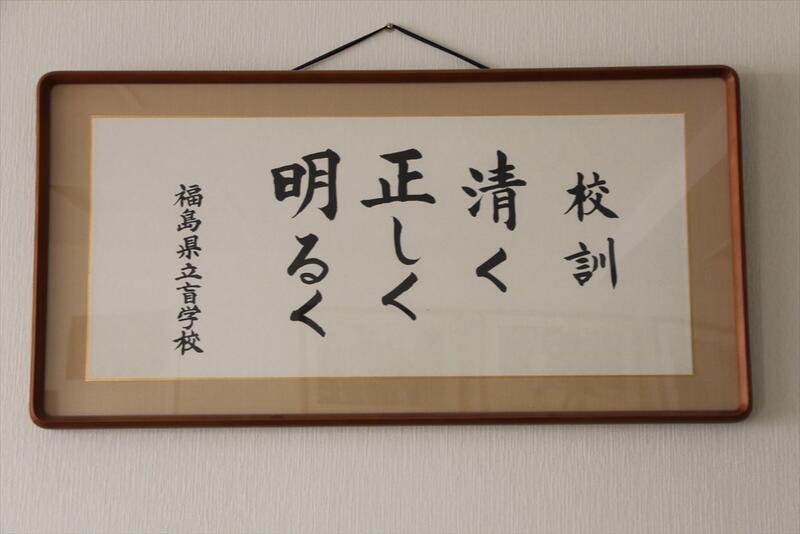 校訓
清く
正しく
明るく
福島県立盲学校